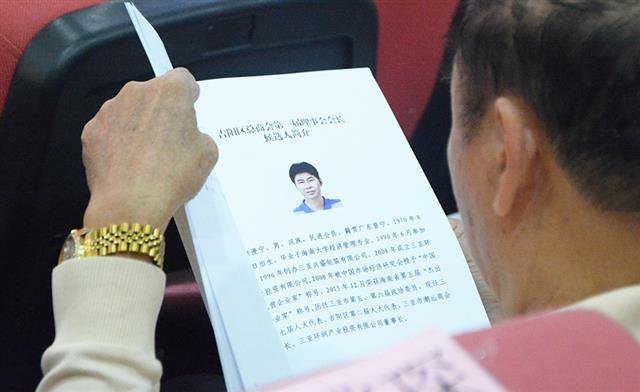 吉阳区总商会第一届理事会会长
候选人简介
隆宁，男，汉族，民进会员，籍贯广东普宁，1970年8
日出生，毕业于海南大学经济管理专业，1990年6月参加
1996年创办三亚兴盛包装有限公司，2008年成立三亚环
投资有限公司，2008年被中国市场经济研究会授予“中
营企业家”称号，2015年12月荣获海南省第五届“杰出
业家”称号，历任三亚市第五、第六届政协委员，现任三
七届人大代表、吉阳区第二届人大代表、三亚市潮汕商会
长、三亚环润产业投资有限公司董事长。